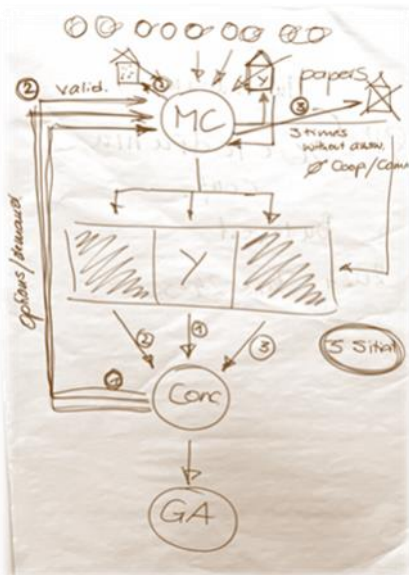 papers
② valid.
①
Y
③
MC
3 times
without answ.
Ø Coop/Comm
options/demands
Y
② ① ③
5 Situat
①
Conc
GA